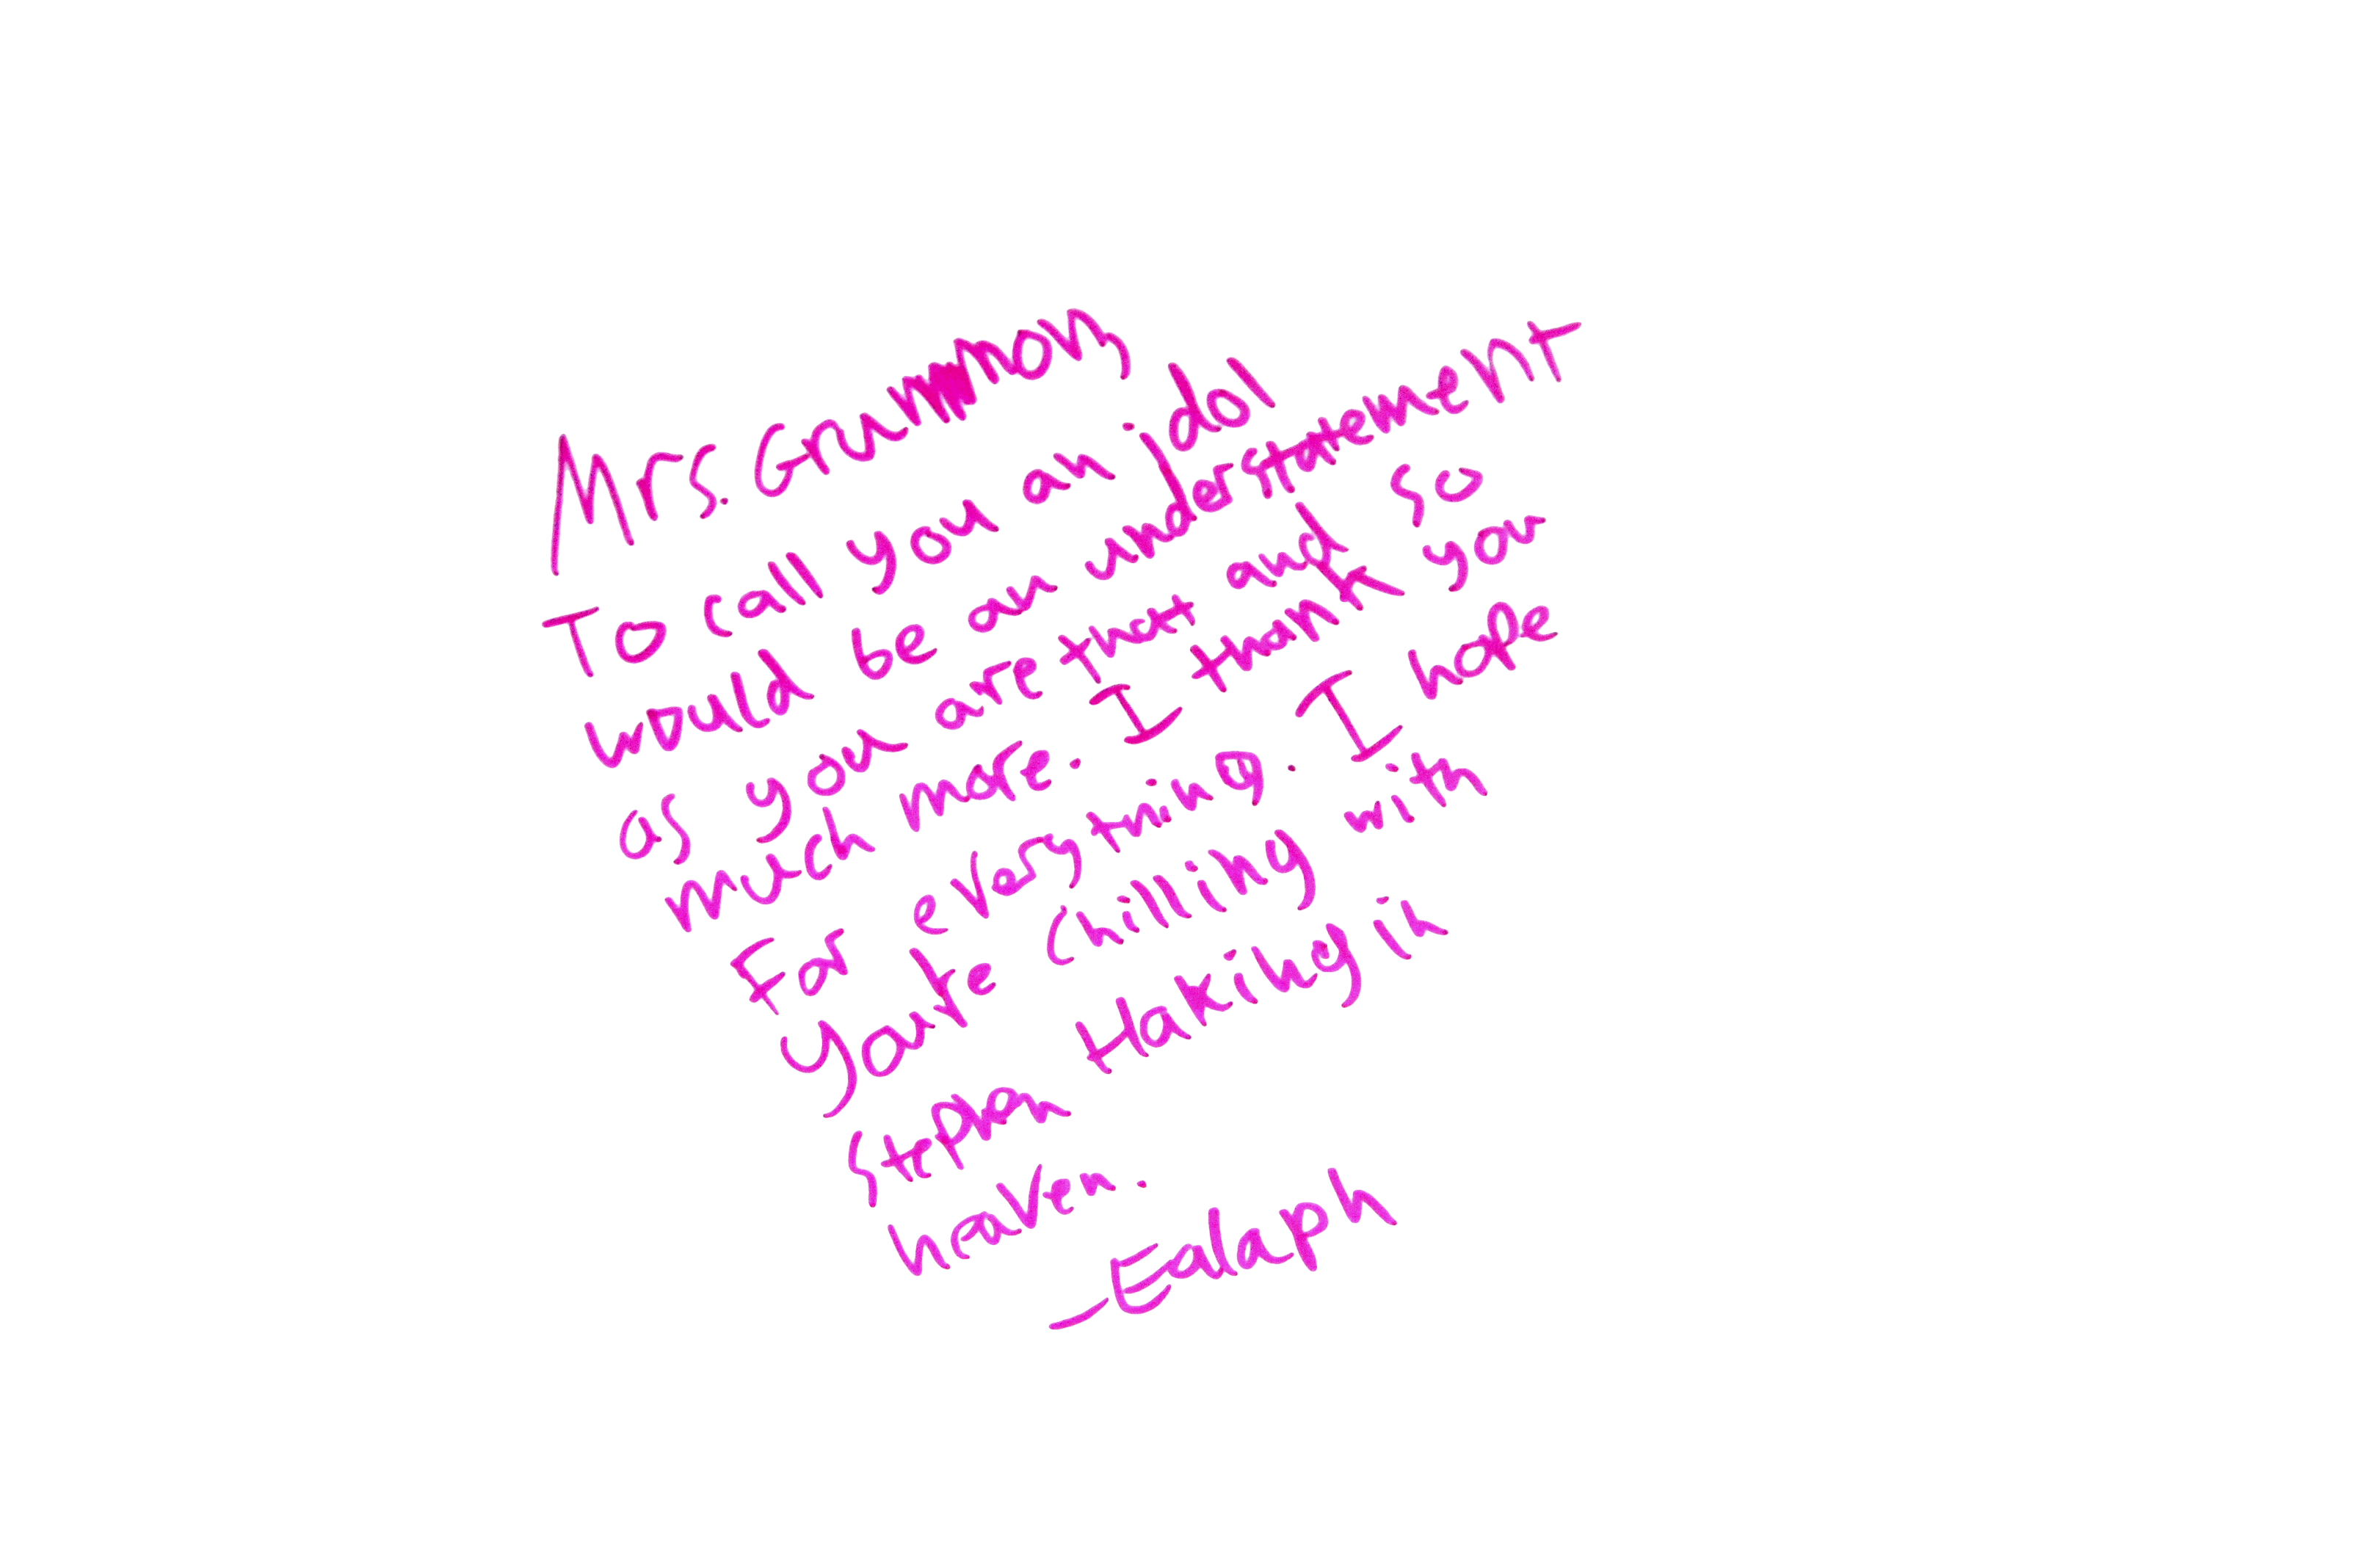 Mrs. Grammon,
To call you an idol
would be an understatement
as you are that and so
much more. I thank you
For everything. I hope
You're chilling with
Stephen Haking in
heaven.
—Ealaph